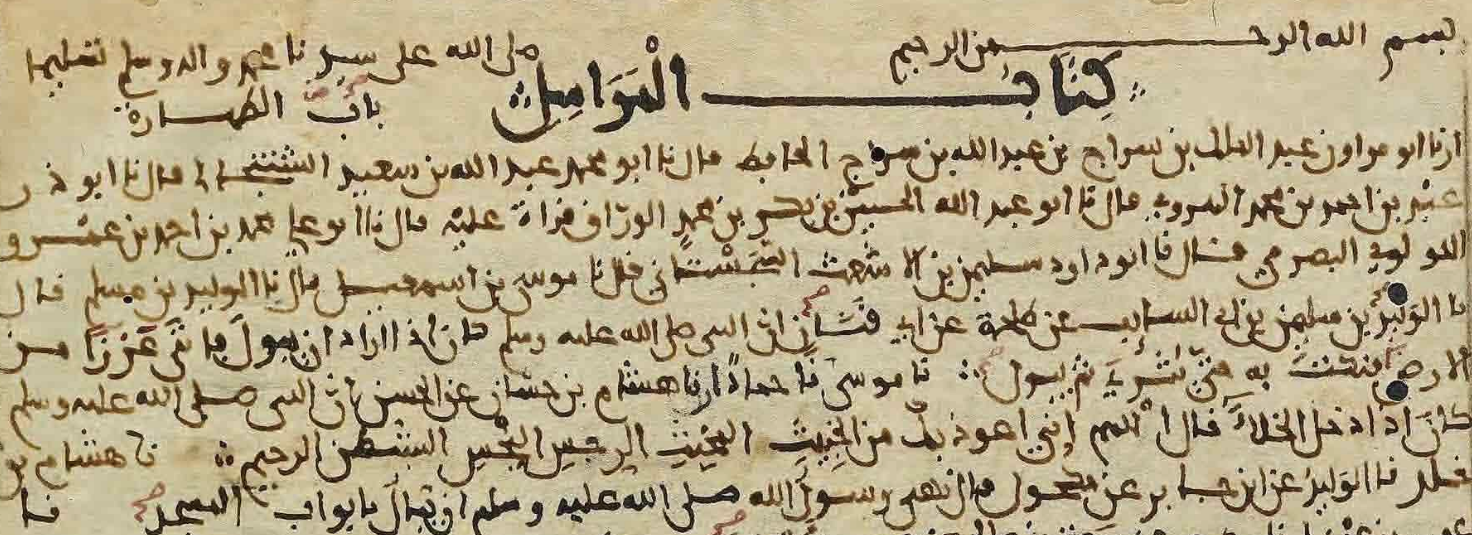 بسم الله الرحمن الرحيم صلى الله على سيدنا محمد واله وسلم تسليما
كِتَابُ الْمَرَاسِلِ
باب الطهارة
ارنا ابو مروان عبد الملك بن سراج بن عبد الله بن سراج الحافظ قال نا ابو محمد عبد الله بن سعيد الشنتجالي قال نا ابو ذر
عبد بن احمد بن محمد الهروي قال نا ابو عبد الله الحسين بن بكر بن محمد الوراق قراة عليه قال نا ابو علي محمد بن احمد بن عمرو
اللولوي البصري قال نا ابو داود سليمن بن الاشعث السجستاني قال نا موسى بن اسمعيل قال نا الوليد بن مسلم قال
نا الوليد بن سليمن بن ابي السايب عن طلحة بن ابي قنان ان النبي صلى الله عليه وسلم كان اذا اراد ان يبول فاتى عززا من
الارض فنكت به حتى يثرى ثم يبول نا موسى نا حماد ارنا هشام بن حسان عن الحسن ان النبي صلى الله عليه وسلم
كان اذا دخل الخلاء قال اللهم اني اعوذ بك من الخبيث المخبث الرجس النجس الشيطن الرجيم نا هشام بن
خلد نا الوليد عن ابن جابر عن مكحول قال نهى رسول الله صلى الله عليه وسلم ان يبال بابواب المسجد نا